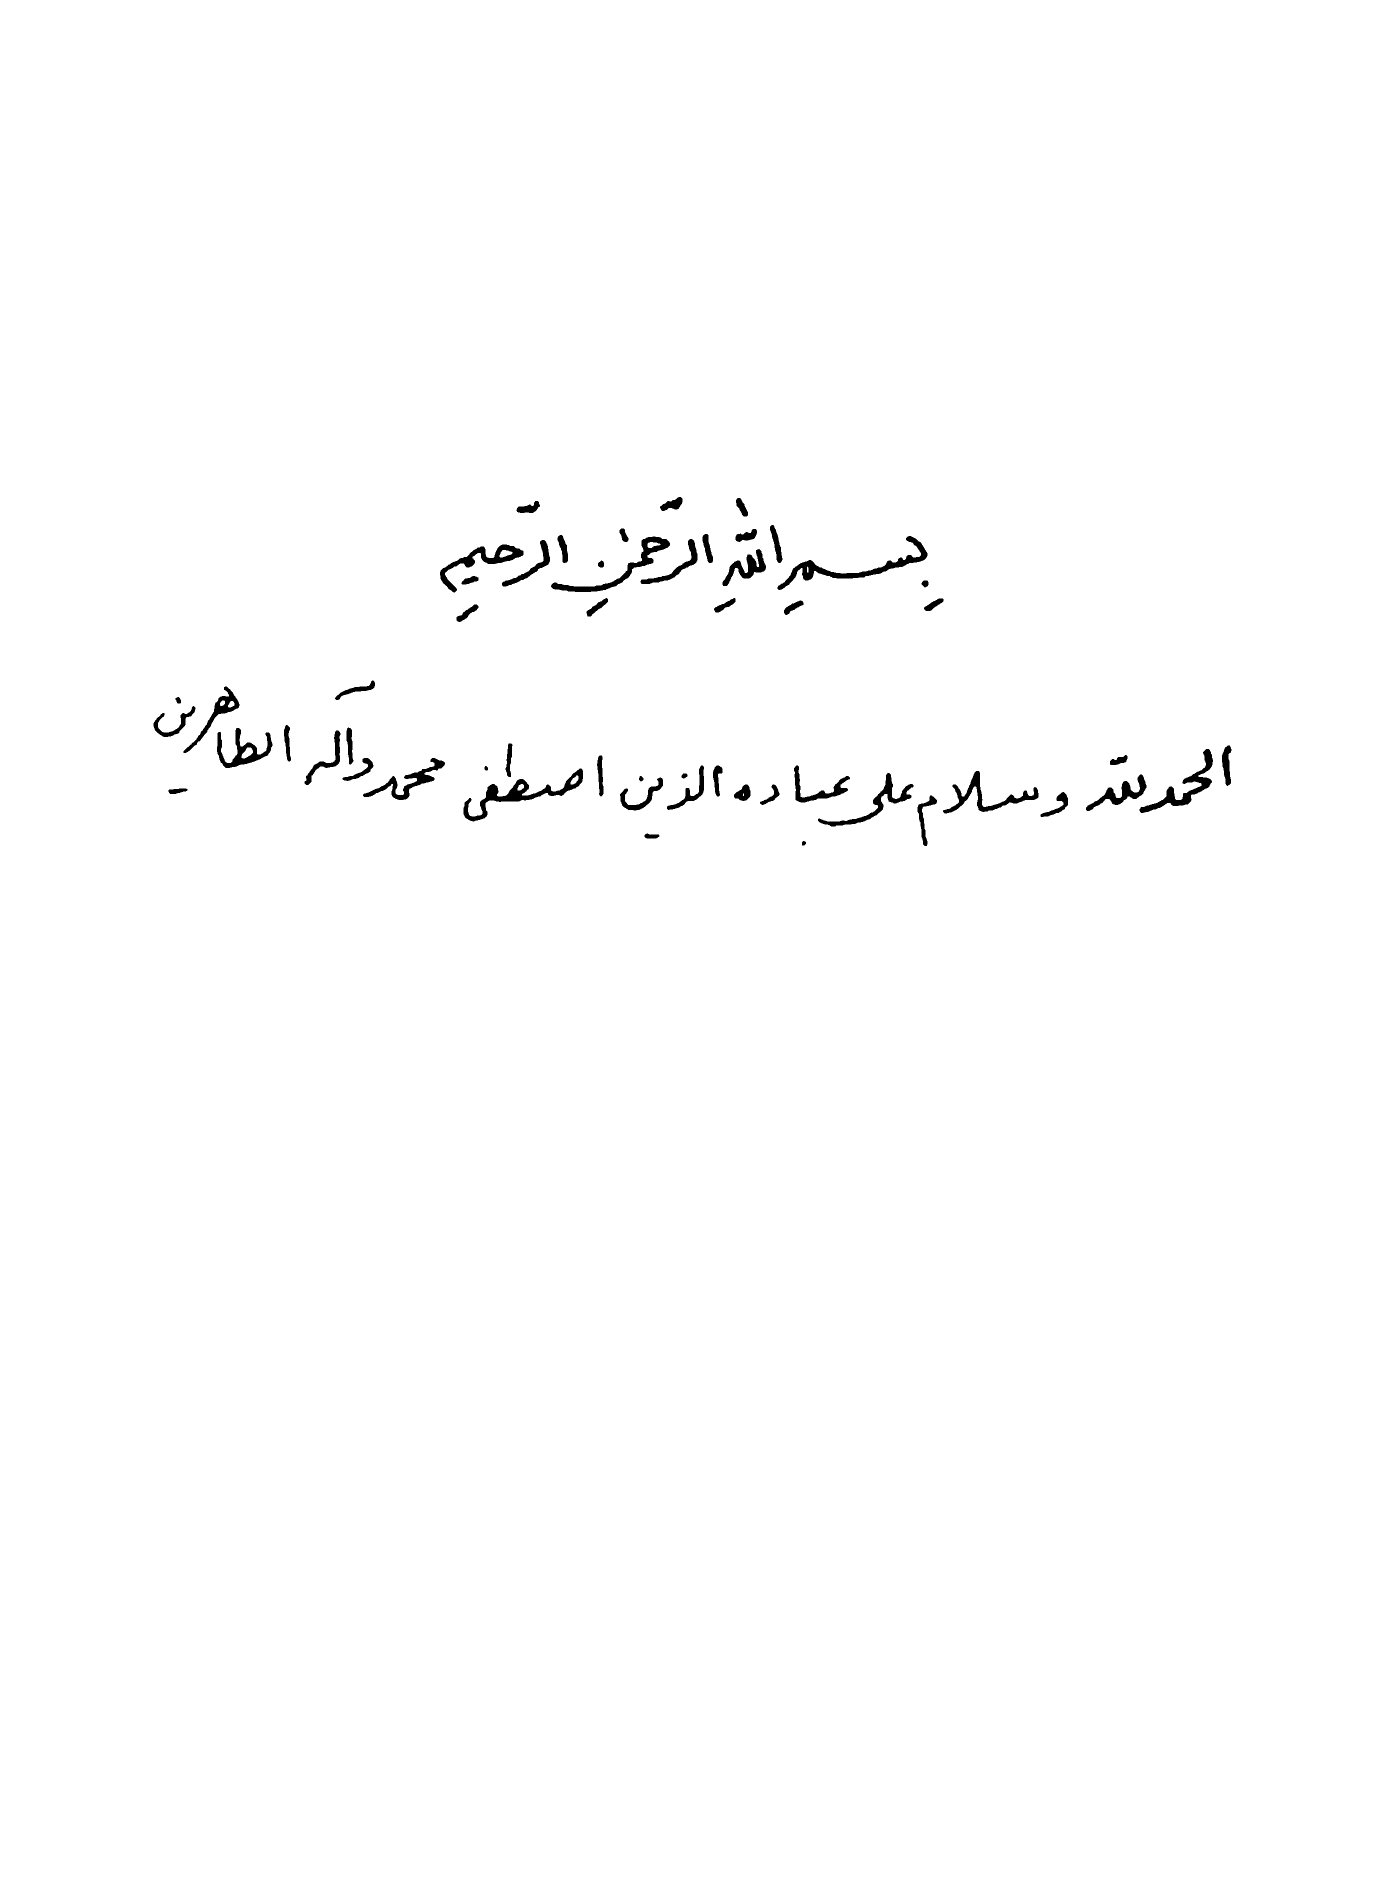 بِسمِ اللّٰهِ الرَّحمٰنِ الرَّحیمِ
الحمد للّه وسلام علی عباده الذین اصطفی محمد وآله الطاهرین